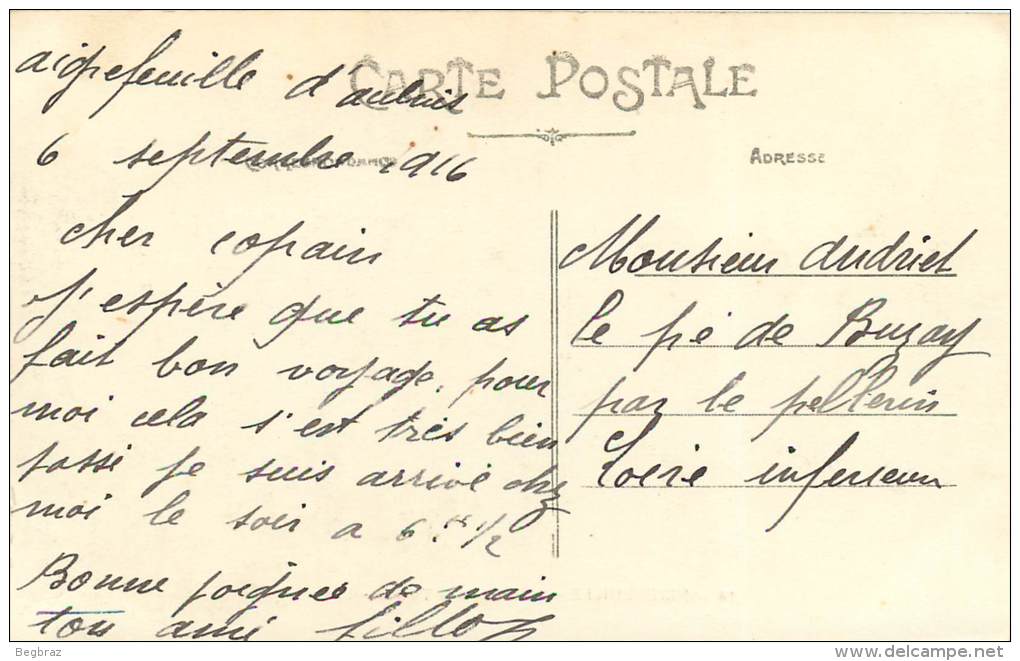 CARTE POSTALE
aigrefeuille d'aulnis
CORRESPONDANCE
6 septembre 1916
cher copain
J'espère que tu as
fait bon voyage, pour
moi cela s'est très bien
passé je suis arrivé chez
moi le soir a 6 h 1/2
Bonne poignée de main
ton ami
ADRESSE
Monsieur Audriet
le pé de Buzay
par le pellerin
Loire inferieure
Begbraz
delcampe.net